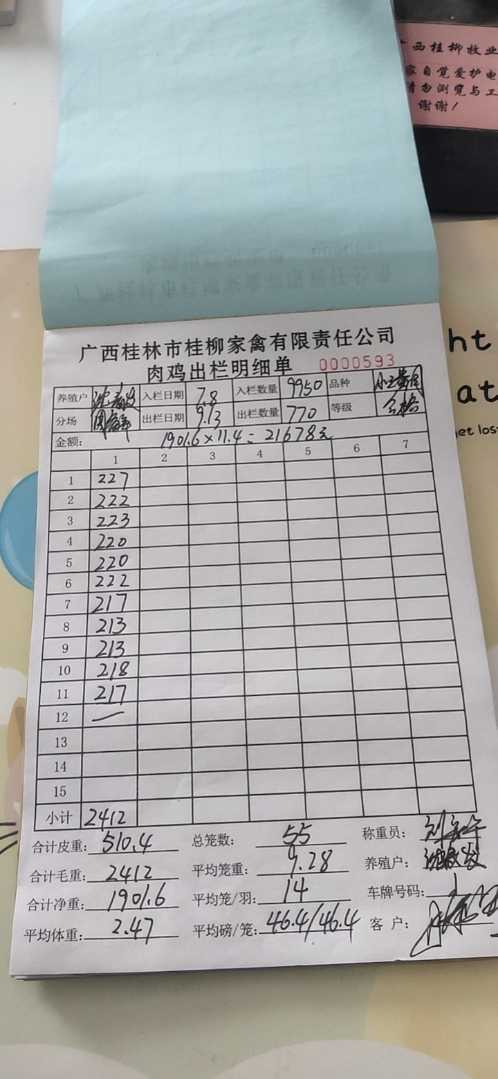 西桂柳牧业
家自觉爱护电
请勿浏览与工
谢谢!
广西桂林市桂柳家禽有限责任公司
肉鸡出栏明细单 0000593
养殖户 入栏日期 7.8 入栏数量 9950 品种
分场 出栏日期 9.13 出栏数量 770 等级 合格
金额: 1901.6×11.4=21678元
1 2 3 4 5 6 7
1 227
2 222
3 223
4 220
5 220
6 222
7 217
8 213
9 213
10 218
11 217
12 —
13
14
15
小计 2412
合计皮重: 510.4 总笼数: 55 称重员:
合计毛重: 2412 平均笼重: 9.28 养殖户:
合计净重: 1901.6 平均笼/羽: 14 车牌号码:
平均体重: 2.47 平均磅/笼: 46.4/46.4 客户:
ht
at
get los